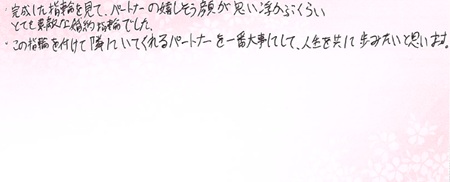 ・完成した指輪を見て、パートナーの嬉しそう顔が思い浮かぶくらい
とても素敵な婚約指輪でした。
・この指輪を付けて隣にいてくれるパートナーを一番大事にして、人生を共に歩みたいと思います。